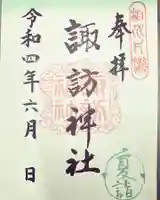 奉拝
諏訪神社
令和四年六月 日
夏詣